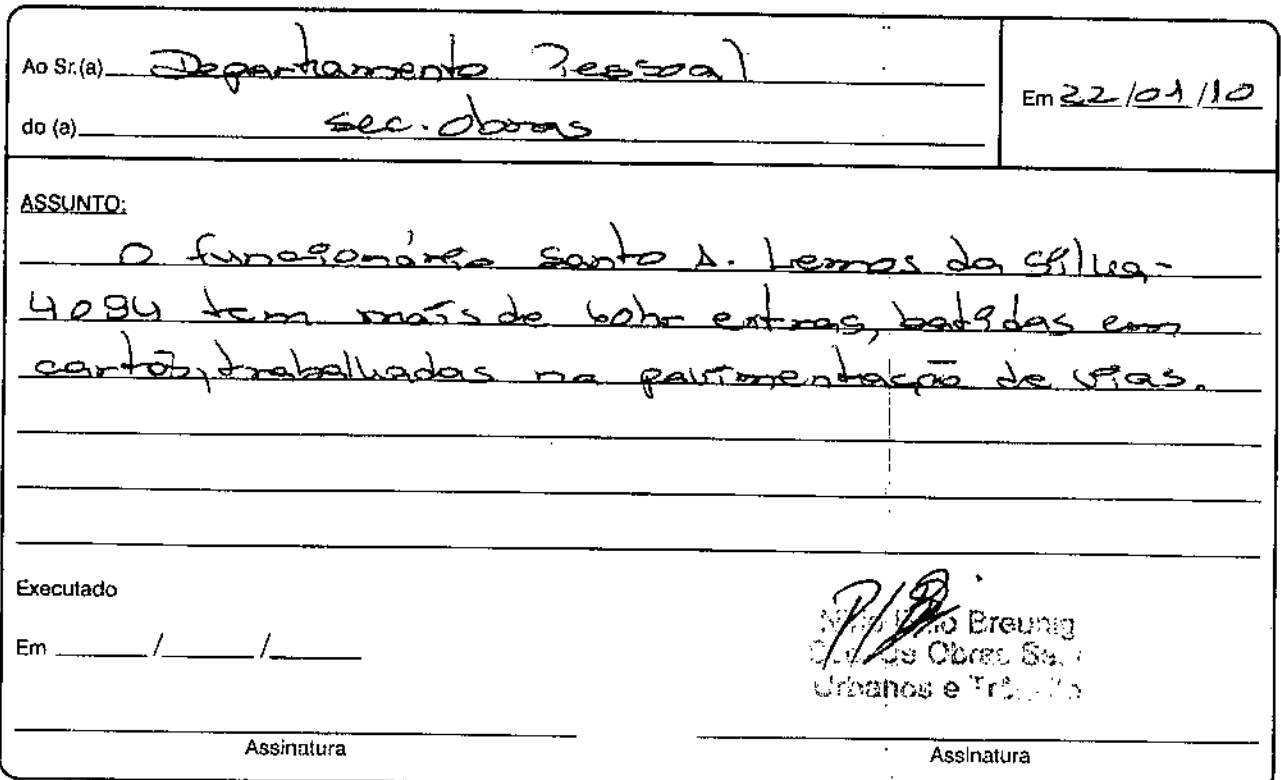 Ao Sr.(a) Departamento Pessoal
Em 22/01/10
do (a) sec. obras
ASSUNTO:
O funcionário Santo A. Lemos da Silva-
4094 tem mais de 60hr extras, batidas em
cartão, trabalhadas na pavimentação de vias.
Executado
Em ____/____/____
Breunig
de Obras
Urbanos e
Assinatura
Assinatura